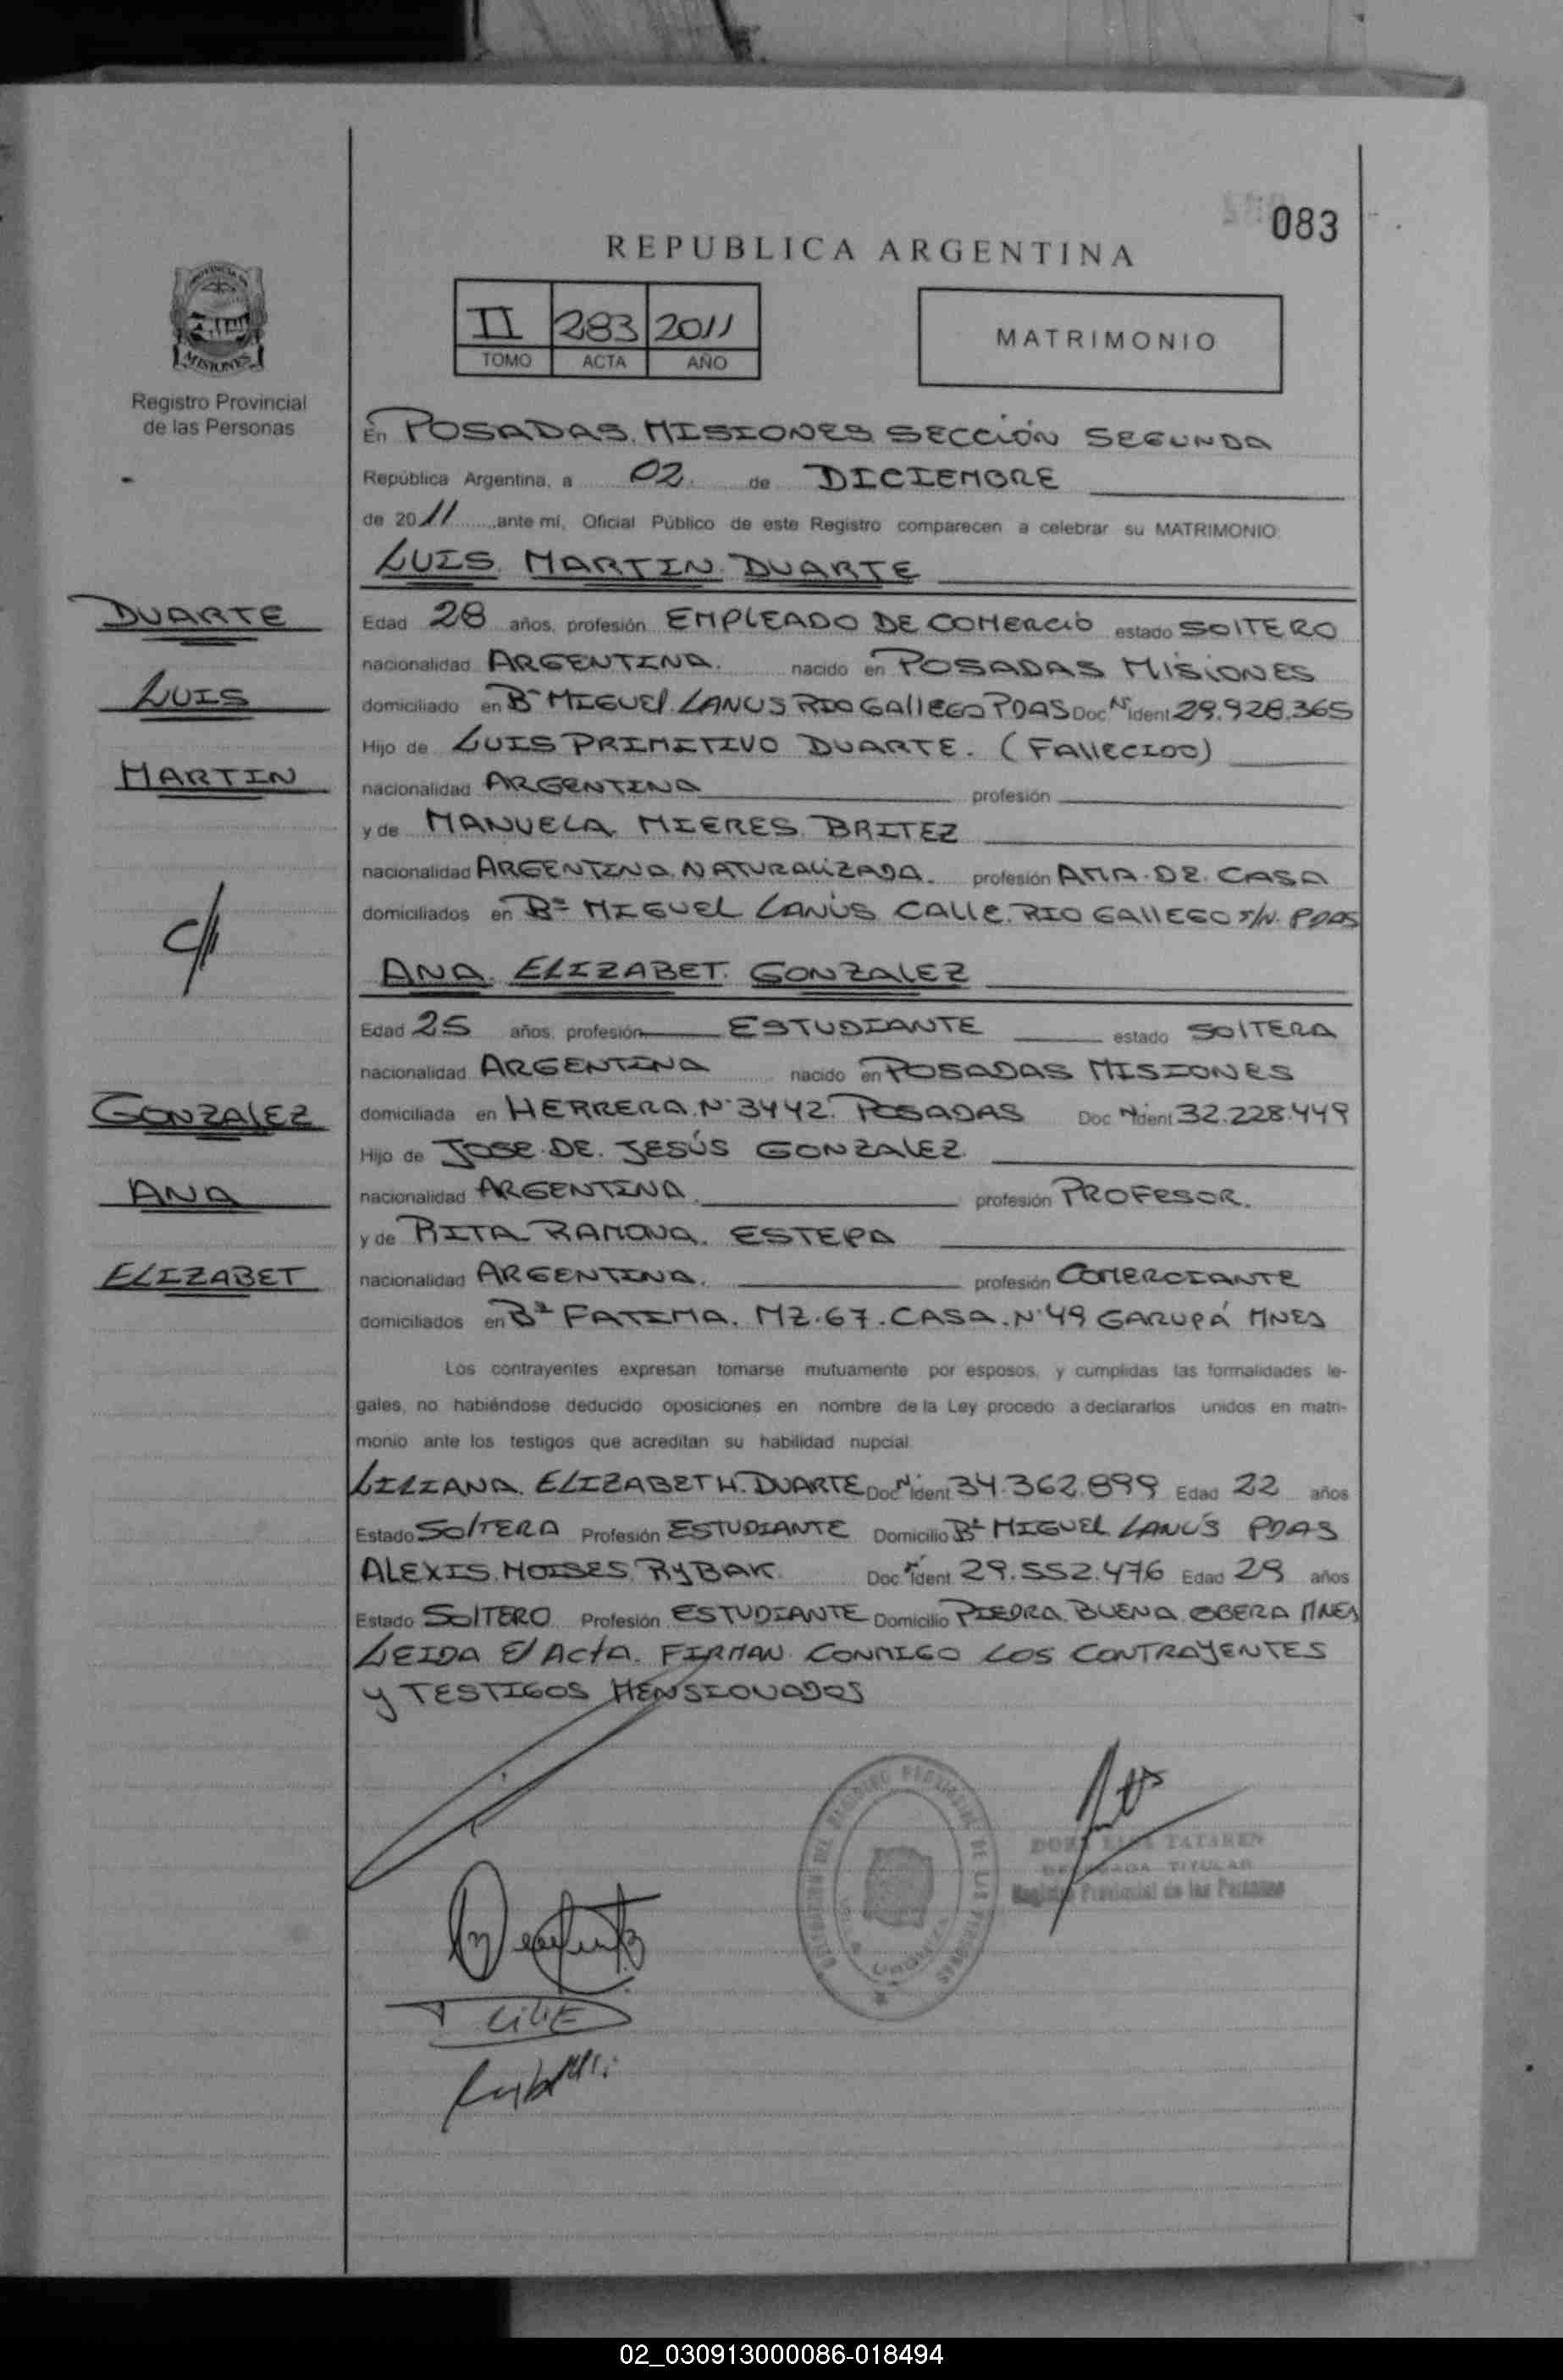 083
REPUBLICA ARGENTINA
II 283 2011
TOMO ACTA AÑO
MATRIMONIO
PROVINCIA DE
MISIONES
Registro Provincial
de las Personas
En POSADAS. MISIONES SECCIÓN SEGUNDA
República Argentina, a 02 de DICIEMBRE
de 2011 ante mí, Oficial Público de este Registro comparecen a celebrar su MATRIMONIO:
LUIS MARTIN DUARTE
DUARTE
LUIS
MARTIN
Edad 28 años, profesión EMPLEADO DE COMERCIO estado SOLTERO
nacionalidad ARGENTINA. nacido en POSADAS MISIONES
domiciliado en Bº MIGUEL LANUS RIO GALLEGO PDAS Doc Nº ident 29.928.365
Hijo de LUIS PRIMITIVO DUARTE. (FALLECIDO)
nacionalidad ARGENTINA profesión
y de MANUELA MIERES BRITEZ
nacionalidad ARGENTINA NATURALIZADA. profesión AMA DE CASA
domiciliados en Bº MIGUEL LANÚS CALLE RIO GALLEGO S/N. PDAS
ANA ELIZABET GONZALEZ
Edad 25 años, profesión ESTUDIANTE estado SOLTERA
nacionalidad ARGENTINA nacido en POSADAS MISIONES
GONZALEZ
ANA
ELIZABET
domiciliada en HERRERA Nº 3442. POSADAS Doc Nº ident 32.228.449
Hijo de JOSE DE JESÚS GONZALEZ
nacionalidad ARGENTINA profesión PROFESOR.
y de RITA RAMONA. ESTEPA
nacionalidad ARGENTINA. profesión COMERCIANTE
domiciliados en Bº FATIMA. MZ. 67. CASA. Nº 49 GARUPÁ MNES
Los contrayentes expresan tomarse mutuamente por esposos, y cumplidas las formalidades le-
gales, no habiéndose deducido oposiciones en nombre de la Ley procedo a declararlos unidos en matri-
monio ante los testigos que acreditan su habilidad nupcial
LILIANA ELIZABETH DUARTE Doc Nº ident 34.362.899 Edad 22 años
Estado SOLTERA Profesión ESTUDIANTE Domicilio Bº MIGUEL LANÚS PDAS
ALEXIS MOISES RYBAK Doc Nº ident 29.552.476 Edad 29 años
Estado SOLTERO Profesión ESTUDIANTE Domicilio PIEDRA BUENA OBERA MNES
LEIDA El ACTA. FIRMAN CONMIGO LOS CONTRAYENTES
Y TESTIGOS MENSIONADOS
TATAREN
TITULAR
Registro Provincial de las Personas
02_030913000086-018494